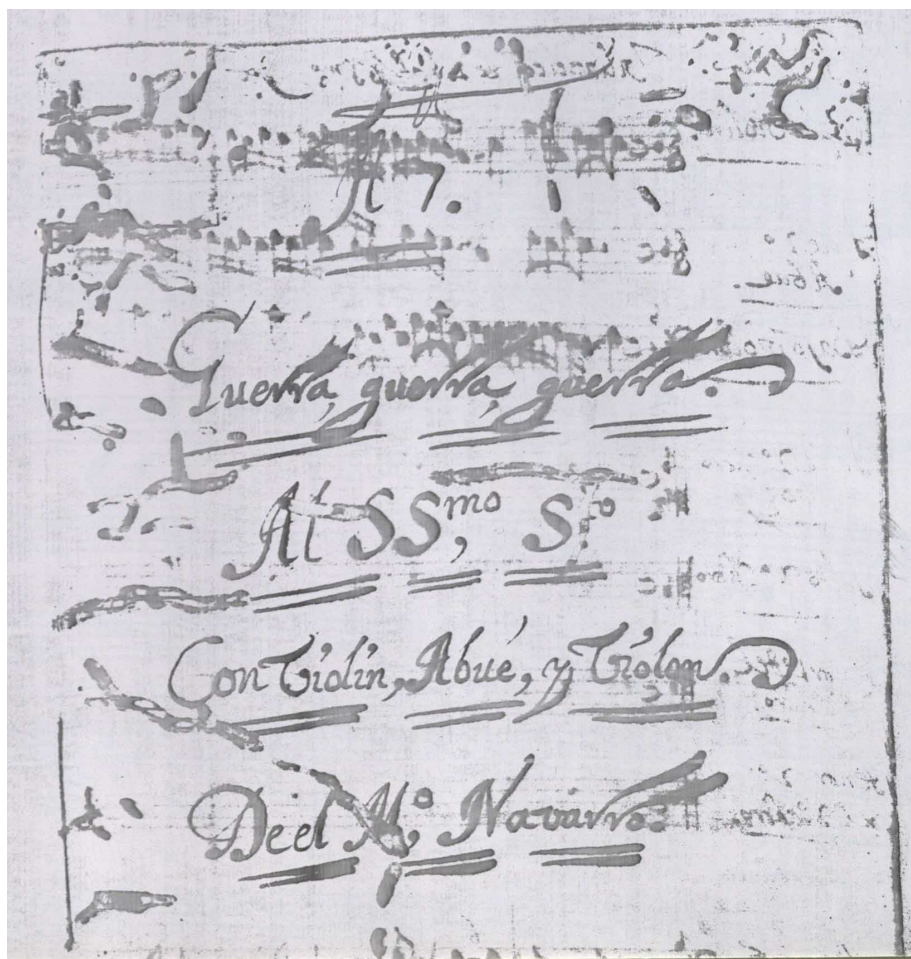 A 7.
Guerra, guerra, guerra.
Al SS,mo S.to
Con Violin, Abué, y Violon.
De el M.o Navarro.